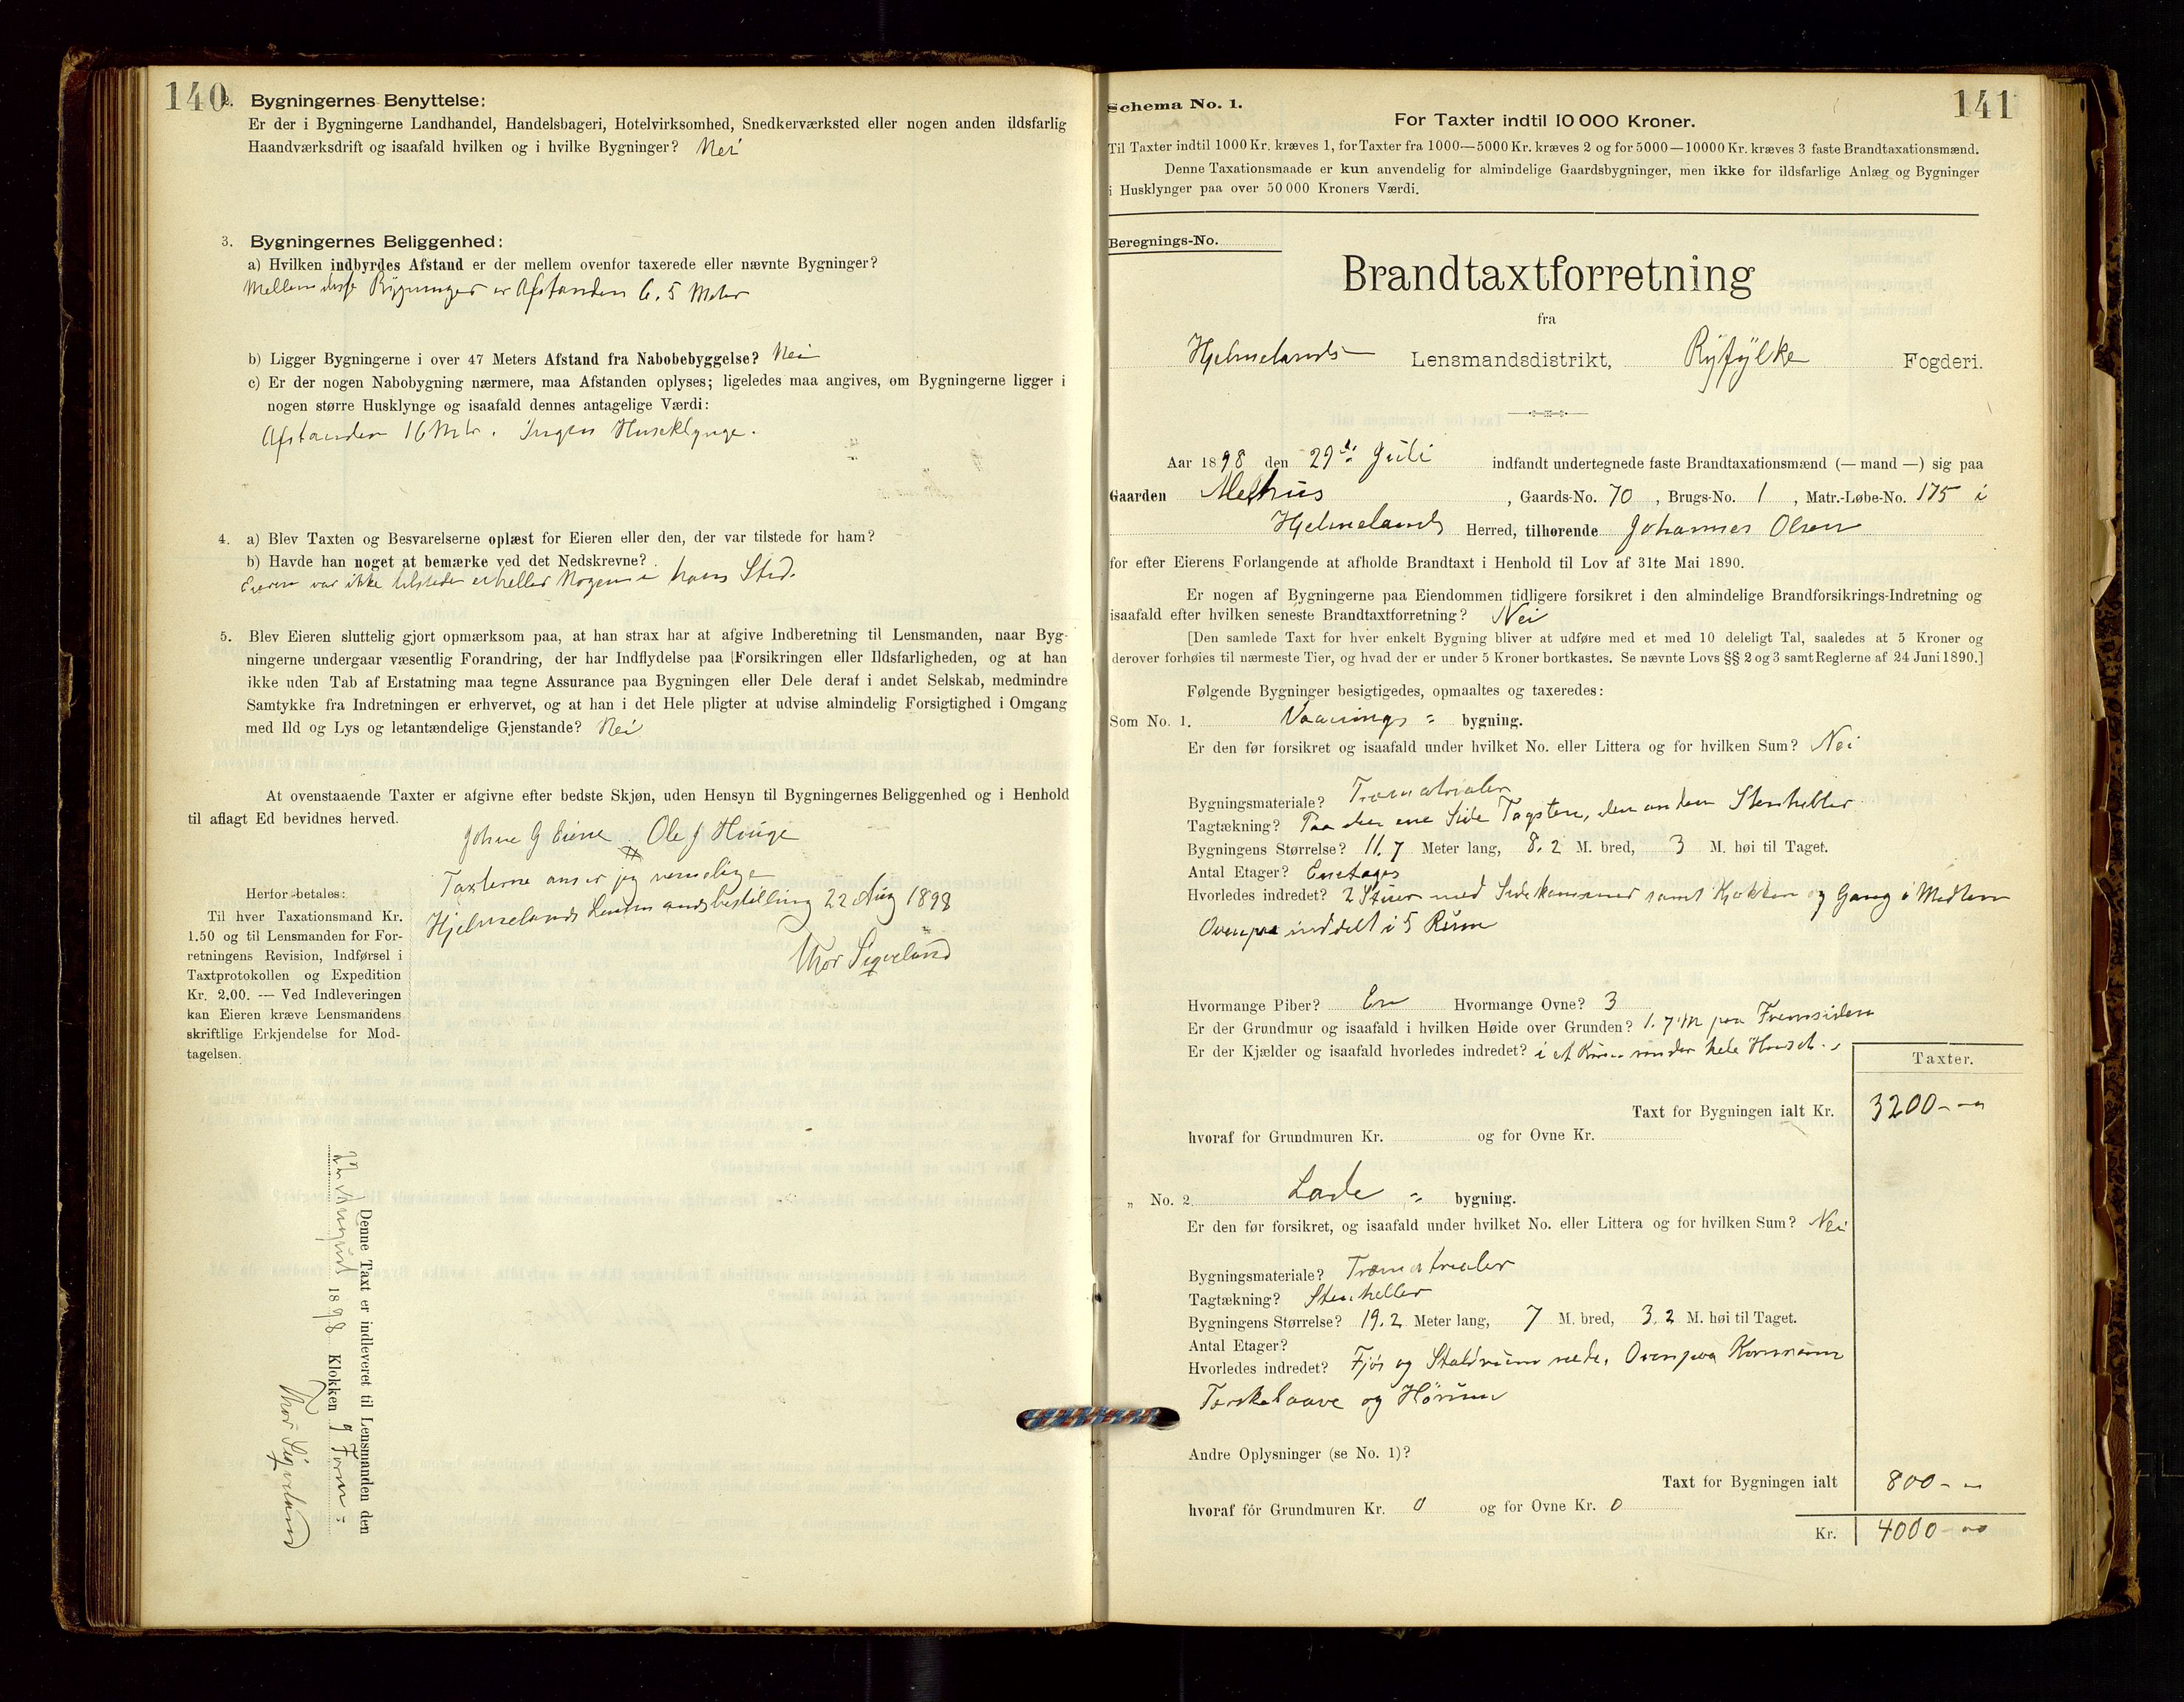 140
2. Bygningernes Benyttelse:
Er der i Bygningerne Landhandel, Handelsbageri, Hotelvirksomhed, Snedkerværksted eller nogen anden ildsfarlig
Haandværksdrift og isaafald hvilken og i hvilke Bygninger? Nei
3. Bygningernes Beliggenhed:
a) Hvilken indbyrdes Afstand er der mellem ovenfor taxerede eller nævnte Bygninger?
Mellem disse Bygninger er Afstanden 6.5 Meter
b) Ligger Bygningerne i over 47 Meters Afstand fra Nabobebyggelse? Nei
c) Er der nogen Nabobygning nærmere, maa Afstanden oplyses; ligeledes maa angives, om Bygningerne ligger i
nogen større Husklynge og isaafald dennes antagelige Værdi:
Afstanden 16 Mtr. Ingen Huseklynge.
4. a) Blev Taxten og Besvarelserne oplæst for Eieren eller den, der var tilstede for ham?
b) Havde han noget at bemærke ved det Nedskrevne?
Eieren var ikke tilstede eiheller Nogen i hans Sted.
5. Blev Eieren sluttelig gjort opmærksom paa, at han strax har at afgive Indberetning til Lensmanden, naar Byg-
ningerne undergaar væsentlig Forandring, der har Indflydelse paa Forsikringen eller Ildsfarligheden, og at han
ikke uden Tab af Erstatning maa tegne Assurance paa Bygningen eller Dele deraf i andet Selskab, medmindre
Samtykke fra Indretningen er erhvervet, og at han i det Hele pligter at udvise almindelig Forsigtighed i Omgang
med Ild og Lys og letantændelige Gjenstande? Nei
At ovenstaaende Taxter er afgivne efter bedste Skjøn, uden Hensyn til Bygningernes Beliggenhed og i Henhold
til aflagt Ed bevidnes herved.
Johne G Eiene Ole J Hauge
Taxterne anser jeg
Hjelmelands Lensmandsbestilling 22 Aug 1898
Thor Sigveland
Herfor betales:
Til hver Taxationsmand Kr.
1.50 og til Lensmanden for For-
retningens Revision, Indførsel i
Taxtprotokollen og Expedition
Kr. 2.00. — Ved Indleveringen
kan Eieren kræve Lensmandens
skriftlige Erkjendelse for Mod-
tagelsen.
Denne Taxt er indleveret til Lensmanden den
August 1898 Klokken 9 Form
Thor Sigveland
141
Schema No. 1.
For Taxter indtil 10 000 Kroner.
Til Taxter indtil 1000 Kr. kræves 1, for Taxter fra 1000—5000 Kr. kræves 2 og for 5000—10000 Kr. kræves 3 faste Brandtaxationsmænd.
Denne Taxationsmaade er kun anvendelig for almindelige Gaardsbygninger, men ikke for ildsfarlige Anlæg og Bygninger
i Husklynger paa over 50 000 Kroners Værdi.
Beregnings-No.
Brandtaxtforretning
fra
Hjelmelands Lensmandsdistrikt, Ryfylke Fogderi.
Aar 1898 den 29de Juli indfandt undertegnede faste Brandtaxationsmænd (— mand —) sig paa
Gaarden Melhus, Gaards-No. 70, Brugs-No. 1, Matr.-Løbe-No. 175 i
Hjelmelands Herred, tilhørende Johannes Olsen
for efter Eierens Forlangende at afholde Brandtaxt i Henhold til Lov af 31te Mai 1890.
Er nogen af Bygningerne paa Eiendommen tidligere forsikret i den almindelige Brandforsikrings-Indretning og
isaafald efter hvilken seneste Brandtaxtforretning? Nei
[Den samlede Taxt for hver enkelt Bygning bliver at udføre med et med 10 deleligt Tal, saaledes at 5 Kroner og
derover forhøies til nærmeste Tier, og hvad der er under 5 Kroner bortkastes. Se nævnte Lovs §§ 2 og 3 samt Reglerne af 24 Juni 1890.]
Følgende Bygninger besigtigedes, opmaaltes og taxeredes:
Som No. 1. Vaanings = bygning.
Er den før forsikret og isaafald under hvilket No. eller Littera og for hvilken Sum? Nei
Bygningsmateriale? Træmaterialer
Tagtækning? Paa den ene Side Tagsten, den anden Stenheller
Bygningens Størrelse? 11.7 Meter lang, 8.2 M. bred, 3 M. høi til Taget.
Antal Etager? Enetages
Hvorledes indredet? 2 Stuer med Sidekammer samt Kjøkken og Gang i Mellem
Ovenpaa inddelt i 5 Rum
Hvormange Piber? En Hvormange Ovne? 3
Er der Grundmur og isaafald i hvilken Høide over Grunden? 1.7 M paa Fremsiden
Er der Kjælder og isaafald hvorledes indredet? i et Rum under hele Huset.
Taxter.
Taxt for Bygningen ialt Kr. 3200 - -
hvoraf for Grundmuren Kr. og for Ovne Kr.
„ No. 2. Lade = bygning.
Er den før forsikret, og isaafald under hvilket No. eller Littera og for hvilken Sum? Nei
Bygningsmateriale? Træmaterialer
Tagtækning? Stenheller
Bygningens Størrelse? 19.2 Meter lang, 7 M. bred, 3.2 M. høi til Taget.
Antal Etager?
Hvorledes indredet? Fjøs og Staldrum nede, Ovenpaa Kornrum
Tærskelaave og Hørum
Andre Oplysninger (se No. 1)?
Taxt for Bygningen ialt 800 - -
hvoraf for Grundmuren Kr. 0 og for Ovne Kr. 0
Kr. 4000 - 00